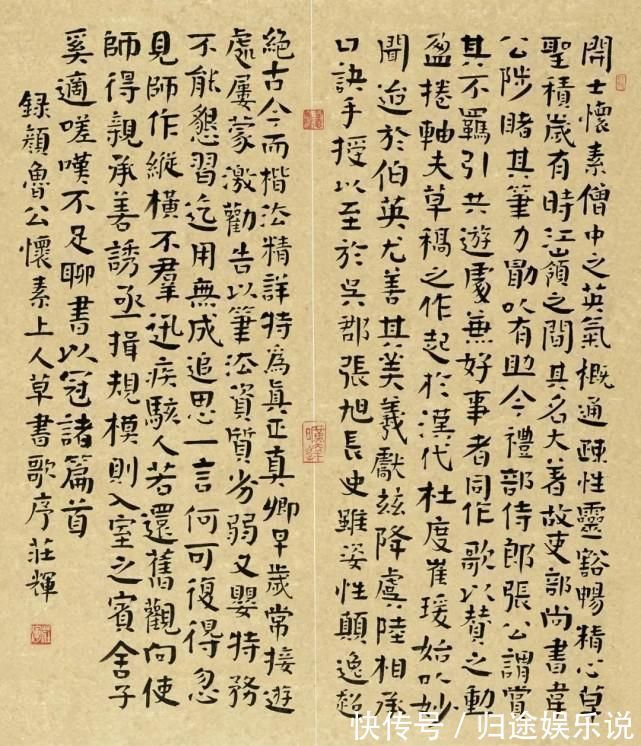 開士懷素僧中之英氣概通疎性靈豁暢精心草
聖積歲有時江嶺之間其名大著故吏部尚書韋
公陟睹其筆力勗以有助今禮部侍郎張公謂賞
其不羈引共遊處兼好事者同作歌以贊之動
盈捲軸夫草稿之作起於漢代杜度崔瑗始以妙
聞迨於伯英尤善其美羲獻茲降虞陸相承
口訣手授以至於吳郡張旭長史雖姿性顛逸超
絕古今而楷法精詳特為真正真卿早歲常接遊
處屢蒙激勸告以筆法資質劣弱又嬰特務
不能懇習迄用無成追思一言何可復得忽
見師作縱橫不羣迅疾駭人若還舊觀向使
師得親承善誘亟揖規模則入室之賓舍子
奚適嗟嘆不足聊書以冠諸篇首
録顏魯公懷素上人草書歌序莊輝
快传号 / 归途娱乐说